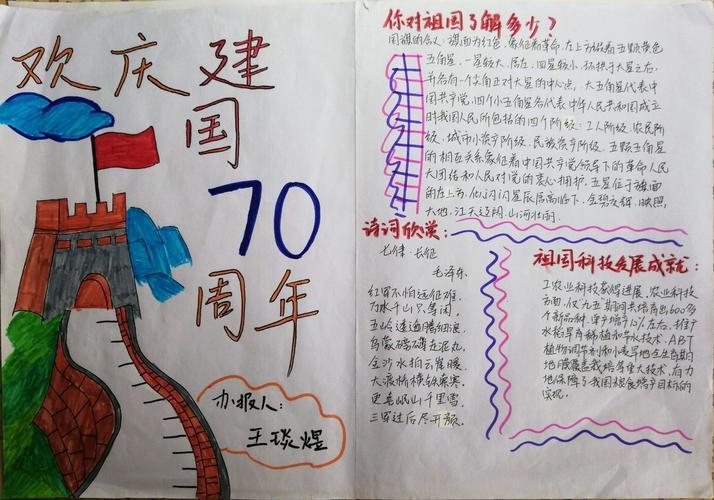 欢庆建
国
70
周年
办报人:
王琰煜
你对祖国了解多少?
国旗的含义:旗面为红色,象征着革命,左上方缀着五颗黄色
五角星,一星较大,居左,四星较小,环拱于大星之右,
并各有一个尖角正对大星的中心点,大五角星代表中
国共产党,四个小五角星各代表中华人民共和国成立
时我国人民所包括的四个阶级:工人阶级、农民阶
级、城市小资产阶级、民族资产阶级,五颗五角星
的相互关系象征着中国共产党领导下的革命人民
大团结和人民对党的衷心拥护,五星位于旗面
的左上方,似闪闪星辰居高临下,金碧交辉,映照
大地,江天辽阔,山河壮丽.
诗词欣赏:
七律·长征
毛泽东
红军不怕远征难,
万水千山只等闲,
五岭逶迤腾细浪,
乌蒙磅礴走泥丸,
金沙水拍云崖暖,
大渡桥横铁索寒,
更喜岷山千里雪,
三军过后尽开颜,
祖国科技发展成就:
1.农业科技蓬勃进展,农业科技
方面,仅九五期间共培育出600多
个新品种,单产增产10%左右,
水稻旱育稀植和节水技术,ABT
植物调节剂和小麦旱地全生育期
地膜覆盖栽培等重大技术,有力
地保障了我国粮食增产目标的
实现.